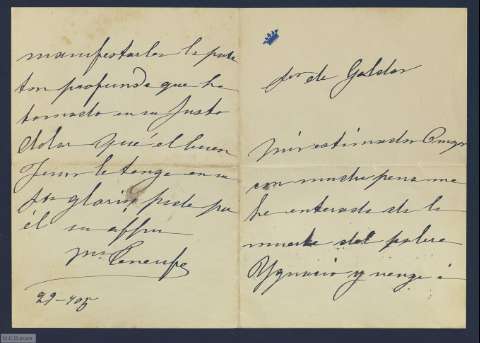 Sr de Galdos
Mi estimado Amigo
con mucha pena me
he enterado de la
muerte del pobre
Ygnacio y vengo á
manifestarle la parte
tan profunda que ha
tomado en su justo
dolor Que el buen
Jesus le tenga en su
Sta gloria, pide por
él su affma
Ma Tenerife
29-905